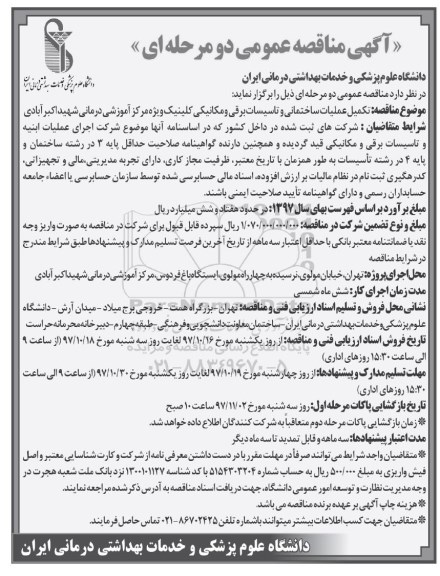 « آگهی مناقصه عمومی دو مرحله ای »
دانشگاه علوم پزشکی و خدمات بهداشتی درمانی ایران
دانشگاه علوم پزشکی و خدمات بهداشتی درمانی ایران
در نظر دارد مناقصه عمومی دو مرحله ای ذیل را برگزار نماید:
موضوع مناقصه: تکمیل عملیات ساختمانی و تاسیسات برقی و مکانیکی کلینیک ویژه مرکز آموزشی درمانی شهید اکبرآبادی
شرایط متقاضیان : شرکت های ثبت شده در داخل کشور که در اساسنامه آنها موضوع شرکت اجرای عملیات ابنیه
و تاسیسات برقی و مکانیکی قید گردیده و همچنین دارنده گواهینامه صلاحیت حداقل پایه ۳ در رشته ساختمان و
پایه ۴ در رشته تأسیسات به طور همزمان با تاریخ معتبر، ظرفیت مجاز کاری، دارای تجربه مدیریتی،مالی و تجهیزاتی،
کدرهگیری ثبت نام در نظام مالیات بر ارزش افزوده، اسناد مالی حسابرسی شده توسط سازمان حسابرسی یا اعضاء جامعه
حسابداران رسمی و دارای گواهینامه تأیید صلاحیت ایمنی باشند.
مبلغ برآورد براساس فهرست بهای سال ۱۳۹۷: در حدود هفتاد و شش میلیارد ریال
مبلغ و نوع تضمین شرکت در مناقصه: ۱/۰۷۰/۰۰۰/۰۰۰ ریال سپرده قابل قبول برای شرکت در مناقصه به صورت واریز وجه
نقد یا ضمانتنامه معتبر بانکی با حداقل اعتبار سه ماهه از تاریخ آخرین فرصت تسلیم مدارک و پیشنهادها طبق شرایط مندرج
در شرایط مناقصه
محل اجرای پروژه: تهران، خیابان مولوی، نرسیده به چهارراه مولوی، ایستگاه باغ فردوس، مرکز آموزشی درمانی شهید اکبرآبادی
مدت زمان اجرای کار: شش ماه شمسی
نشانی محل فروش و تسلیم اسناد ارزیابی فنی و مناقصه: تهران -بزرگراه همت - خروجی برج میلاد - میدان آرش - دانشگاه
علوم پزشکی و خدمات بهداشتی درمانی ایران -ساختمان معاونت دانشجویی و فرهنگی -طبقه چهارم - دبیرخانه محرمانه حراست
تاریخ فروش اسناد ارزیابی فنی و مناقصه: از روز یکشنبه مورخ ۹۷/۱۰/۱۶ لغایت روز سه شنبه مورخ ۹۷/۱۰/۱۸ (از ساعت ۹
الی ساعت ۱۵:۳۰ روزهای اداری)
مهلت تسلیم مدارک و پیشنهادها: از روز چهارشنبه مورخ ۹۷/۱۰/۱۹ لغایت روز یکشنبه مورخ ۹۷/۱۰/۳۰ (از ساعت ۹ الی ساعت
۱۵:۳۰ روزهای اداری)
تاریخ بازگشایی پاکات مرحله اول: روز سه شنبه مورخ ۹۷/۱۱/۰۲ ساعت ۱۰ صبح
※ زمان بازگشایی پاکات مرحله دوم متعاقباً به شرکت کنندگان اطلاع داده خواهد شد.
مدت اعتبار پیشنهادها: سه ماهه و قابل تمدید تا سه ماه دیگر
※ متقاضیان واجد شرایط می توانند صرفاً در مهلت مقرر با در دست داشتن معرفی نامه از شرکت و کارت شناسایی معتبر و اصل
فیش واریزی به مبلغ ۵۰۰/۰۰۰ ریال به حساب شماره ۵۱۵۴۳۰۳۲۰۴ با کد شناسه ۱۳۰۰۱۰۱۱۲۷ نزد بانک ملت شعبه هجرت در
وجه مدیریت نظارت و توسعه امور عمومی دانشگاه، جهت دریافت اسناد مناقصه به آدرس ذکر شده مراجعه نمایند.
※ هزینه چاپ آگهی بر عهده برنده مناقصه می باشد.
※ متقاضیان جهت کسب اطلاعات بیشتر میتوانند با شماره تلفن ۸۶۷۰۲۴۲۵-۰۲۱ تماس حاصل فرمایند.
دانشگاه علوم پزشکی و خدمات بهداشتی درمانی ایران